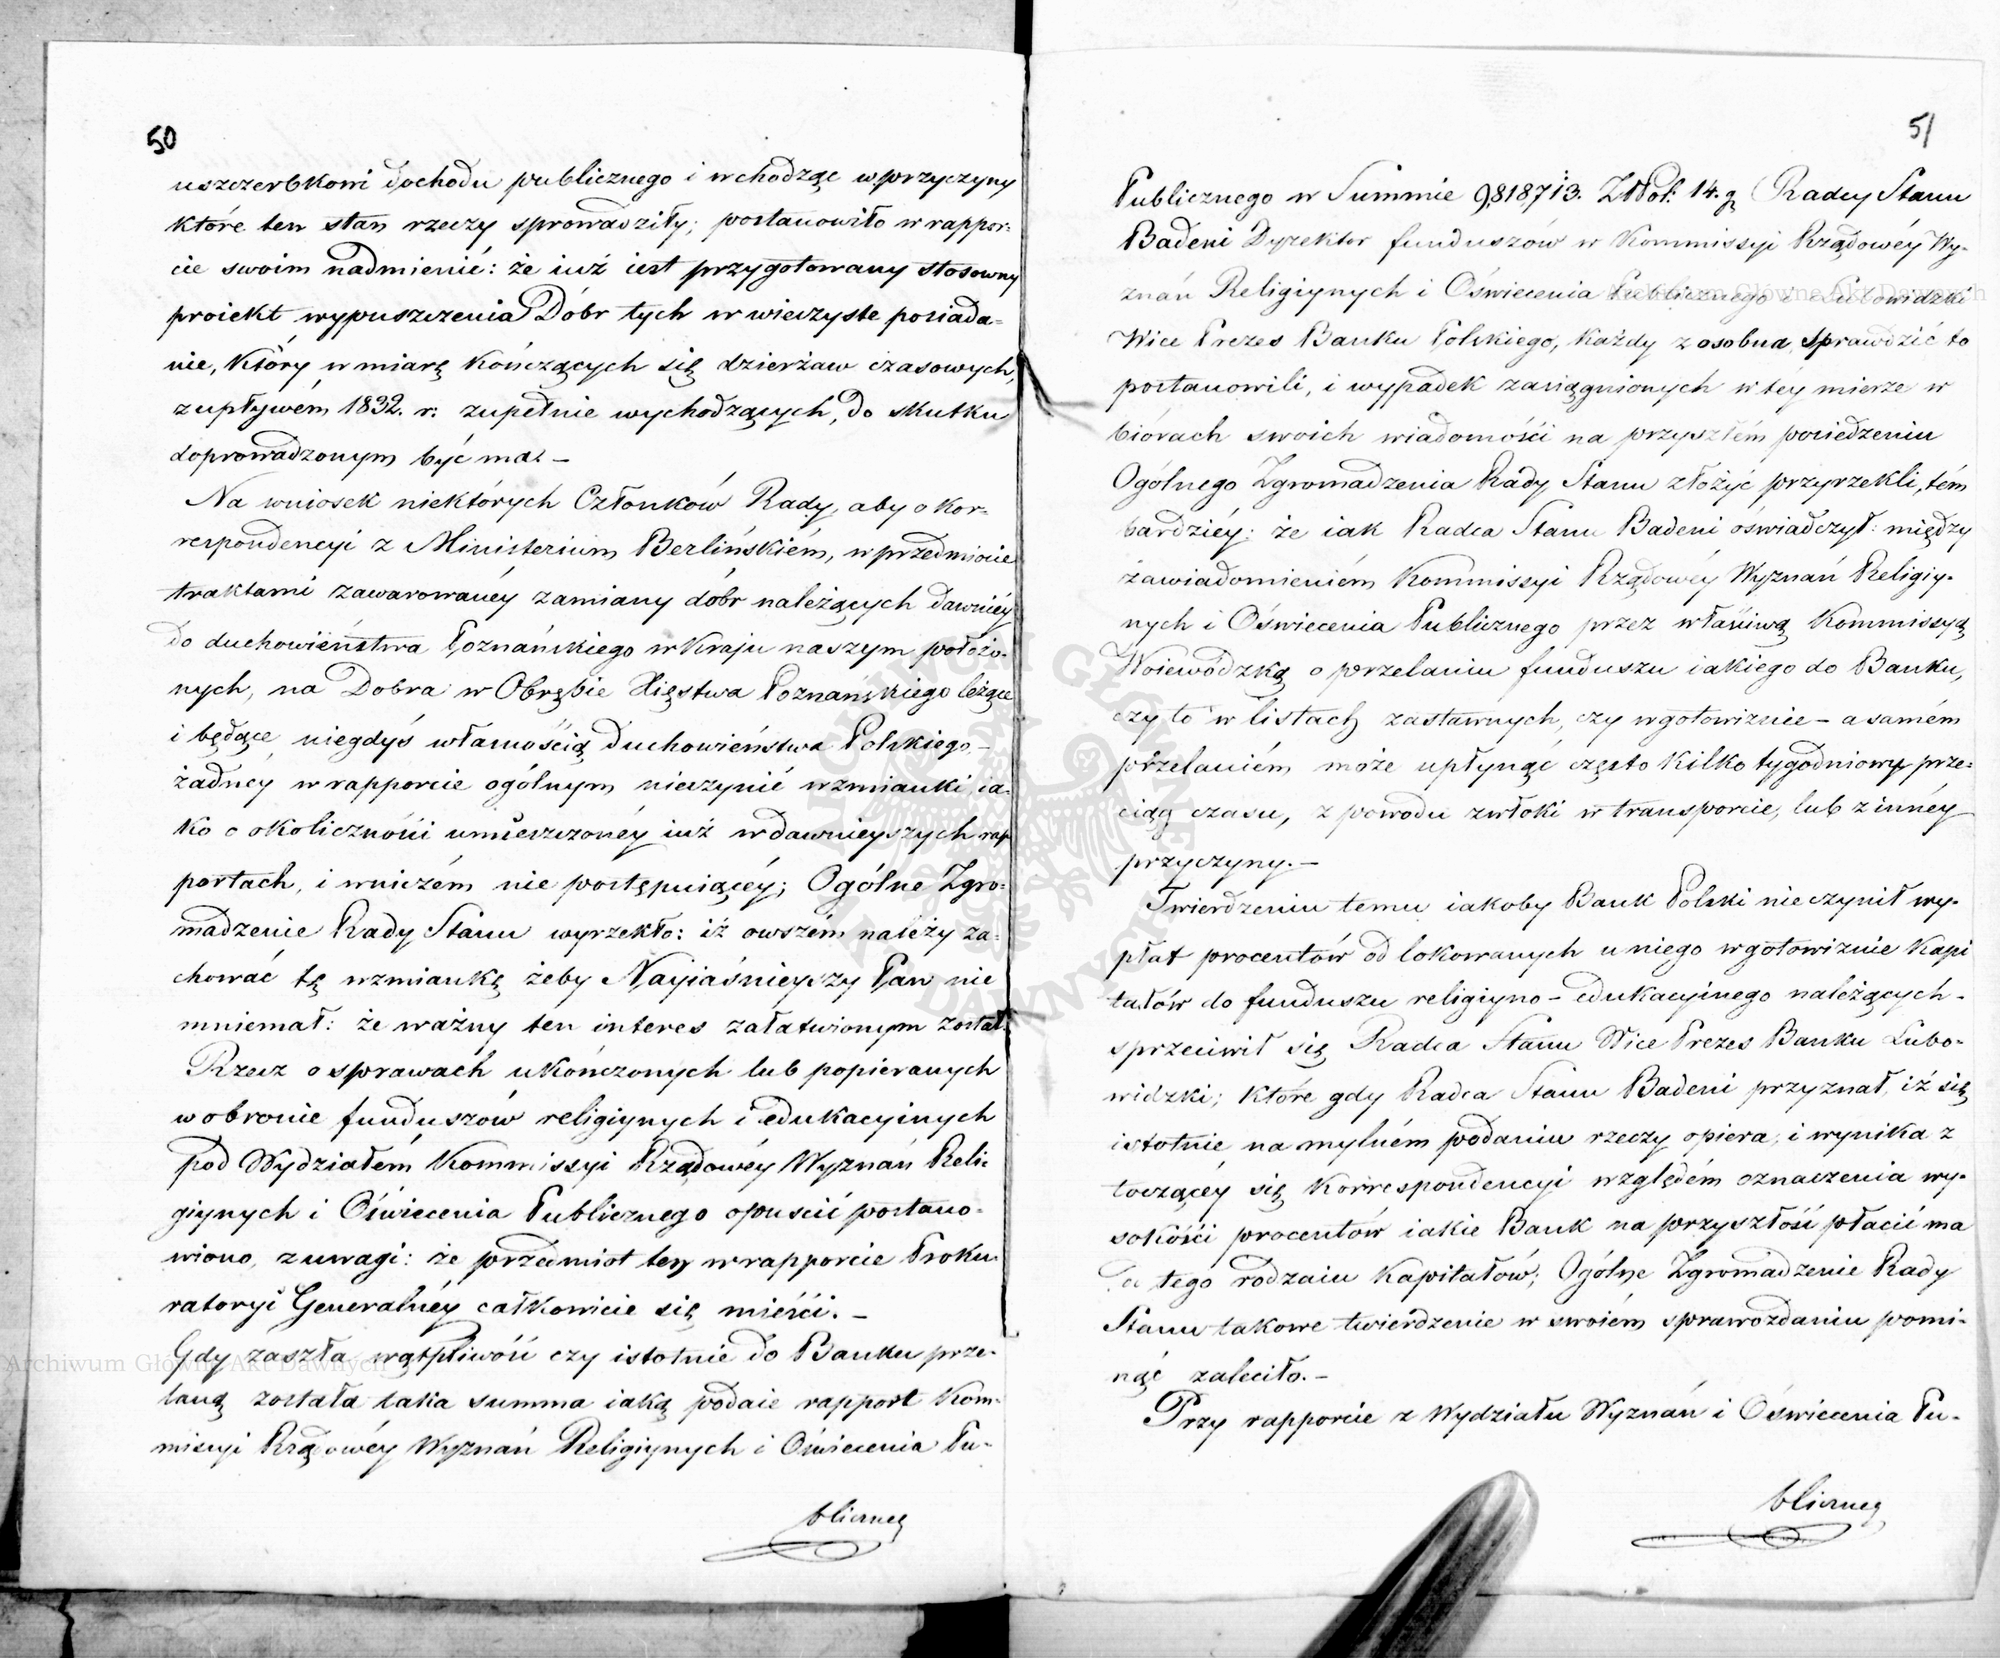 50
uszczerbkowi dochodu publicznego i wchodząc w przyczyny
które ten stan rzeczy sprowadziły; postanowiło w rappor-
cie swoim nadmienić: że iuż iest przygotowany stosowny
proiekt wypuszczenia Dóbr tych w wieczyste posiada-
nie, który w miarę kończących się dzierżaw czasowych,
z upływem 1832. r: zupełnie wychodzących, do skutku
doprowadzonym być ma. –
Na wniosek niektórych Członków Rady, aby o kor-
respondencyi z Ministerium Berlińskiém, w przedmiocie
traktami zawarowanéy zamiany dóbr należących dawniéy
do duchowieństwa Poznańskiego w Kraju naszym położo-
nych, na Dobra w Obrębie Xięstwa Poznańskiego leżące
i będące niegdyś własnością duchowieństwa Polskiego –
żadnéy w rapporcie ogólnym nieczynić wzmianki, ia-
ko o okoliczności umieszczonéy iuż w dawnieyszych rap-
portach, i w niczém nie postępuiącéy; Ogólne Zgro-
madzenie Rady Stanu wyrzekło: iż owszém należy za-
chować tę wzmiankę żeby Nayiaśnieyszy Pan nie
mniemał: że ważny ten interes załatwionym został.
Rzecz o sprawach ukończonych lub popieranych
w obronie funduszów religiynych i edukacyinych
pod Wydziałém Kommissyi Rządowéy Wyznań Reli-
giynych i Oświecenia Publicznego opuścić postano-
wiono, z uwagi: że przedmiot ten w rapporcie Proku-
ratoryi Generalnéy całkowicie się mieści. –
Gdy zaszła wątpliwość czy istotnie do Banku prze-
laną została taka summa iaką podaie rapport Kom-
missyi Rządowéy Wyznań Religiynych i Oświecenia Pu-
blicznego
51
Publicznego w Summie 9,818713. Złłpol: 14. g. Radcy Stanu
Badeni Dyrektor funduszów w Kommissyi Rządowéy Wy-
znań Religiynych i Oświecenia Publicznego i Lubowidzki
Wice Prezes Banku Polskiego, każdy z osobna, sprawdzić to
postanowili, i wypadek zasiągnionych w téy mierze w
biórach swoich wiadomości na przyszłém posiedzeniu
Ogólnego Zgromadzenia Rady Stanu złożyć przyrzekli, tém
bardziéy: że iak Radca Stanu Badeni oświadczył: między
zawiadomieniém Kommissyi Rządowéy Wyznań Religiy-
nych i Oświecenia Publicznego przez właściwą Kommissyą
Woiewódzką o przelaniu funduszu iakiego do Banku,
czy to w listach zastawnych, czy w gotowiznie – a samém
przelaniém może upłynąć często kilko tygodniowy prze-
ciąg czasu, z powodu zwłoki w transporcie, lub z innéy
przyczyny. –
Twierdzeniu temu iakoby Bank Polski nie czynił wy-
płat procentów od lokowanych u niego w gotowiznie kapi
tałów do funduszu religiyno – edukacyinego należących –
sprzeciwił się Radca Stanu Wice Prezes Banku Lubo-
widzki; które gdy Radca Stanu Badeni przyznał, iż się
istotnie na mylném podaniu rzeczy opiera, i wynika z
toczącéy się korrespondencyi względém oznaczenia wy-
sokości procentów iakie Bank na przyszłość płacić ma
od tego rodzaiu Kapitałów; Ogólne Zgromadzenie Rady
Stanu takowe twierdzenie w swoiém sprawozdaniu pomi-
nąć zaleciło. –
Przy rapporcie z Wydziału Wyznań i Oświecenia Pu-
blicznego
Archiwum Główne Akt Dawnych
Archiwum Główne Akt Dawnych
ARCHIWUM GŁÓWNE AKT DAWNYCH